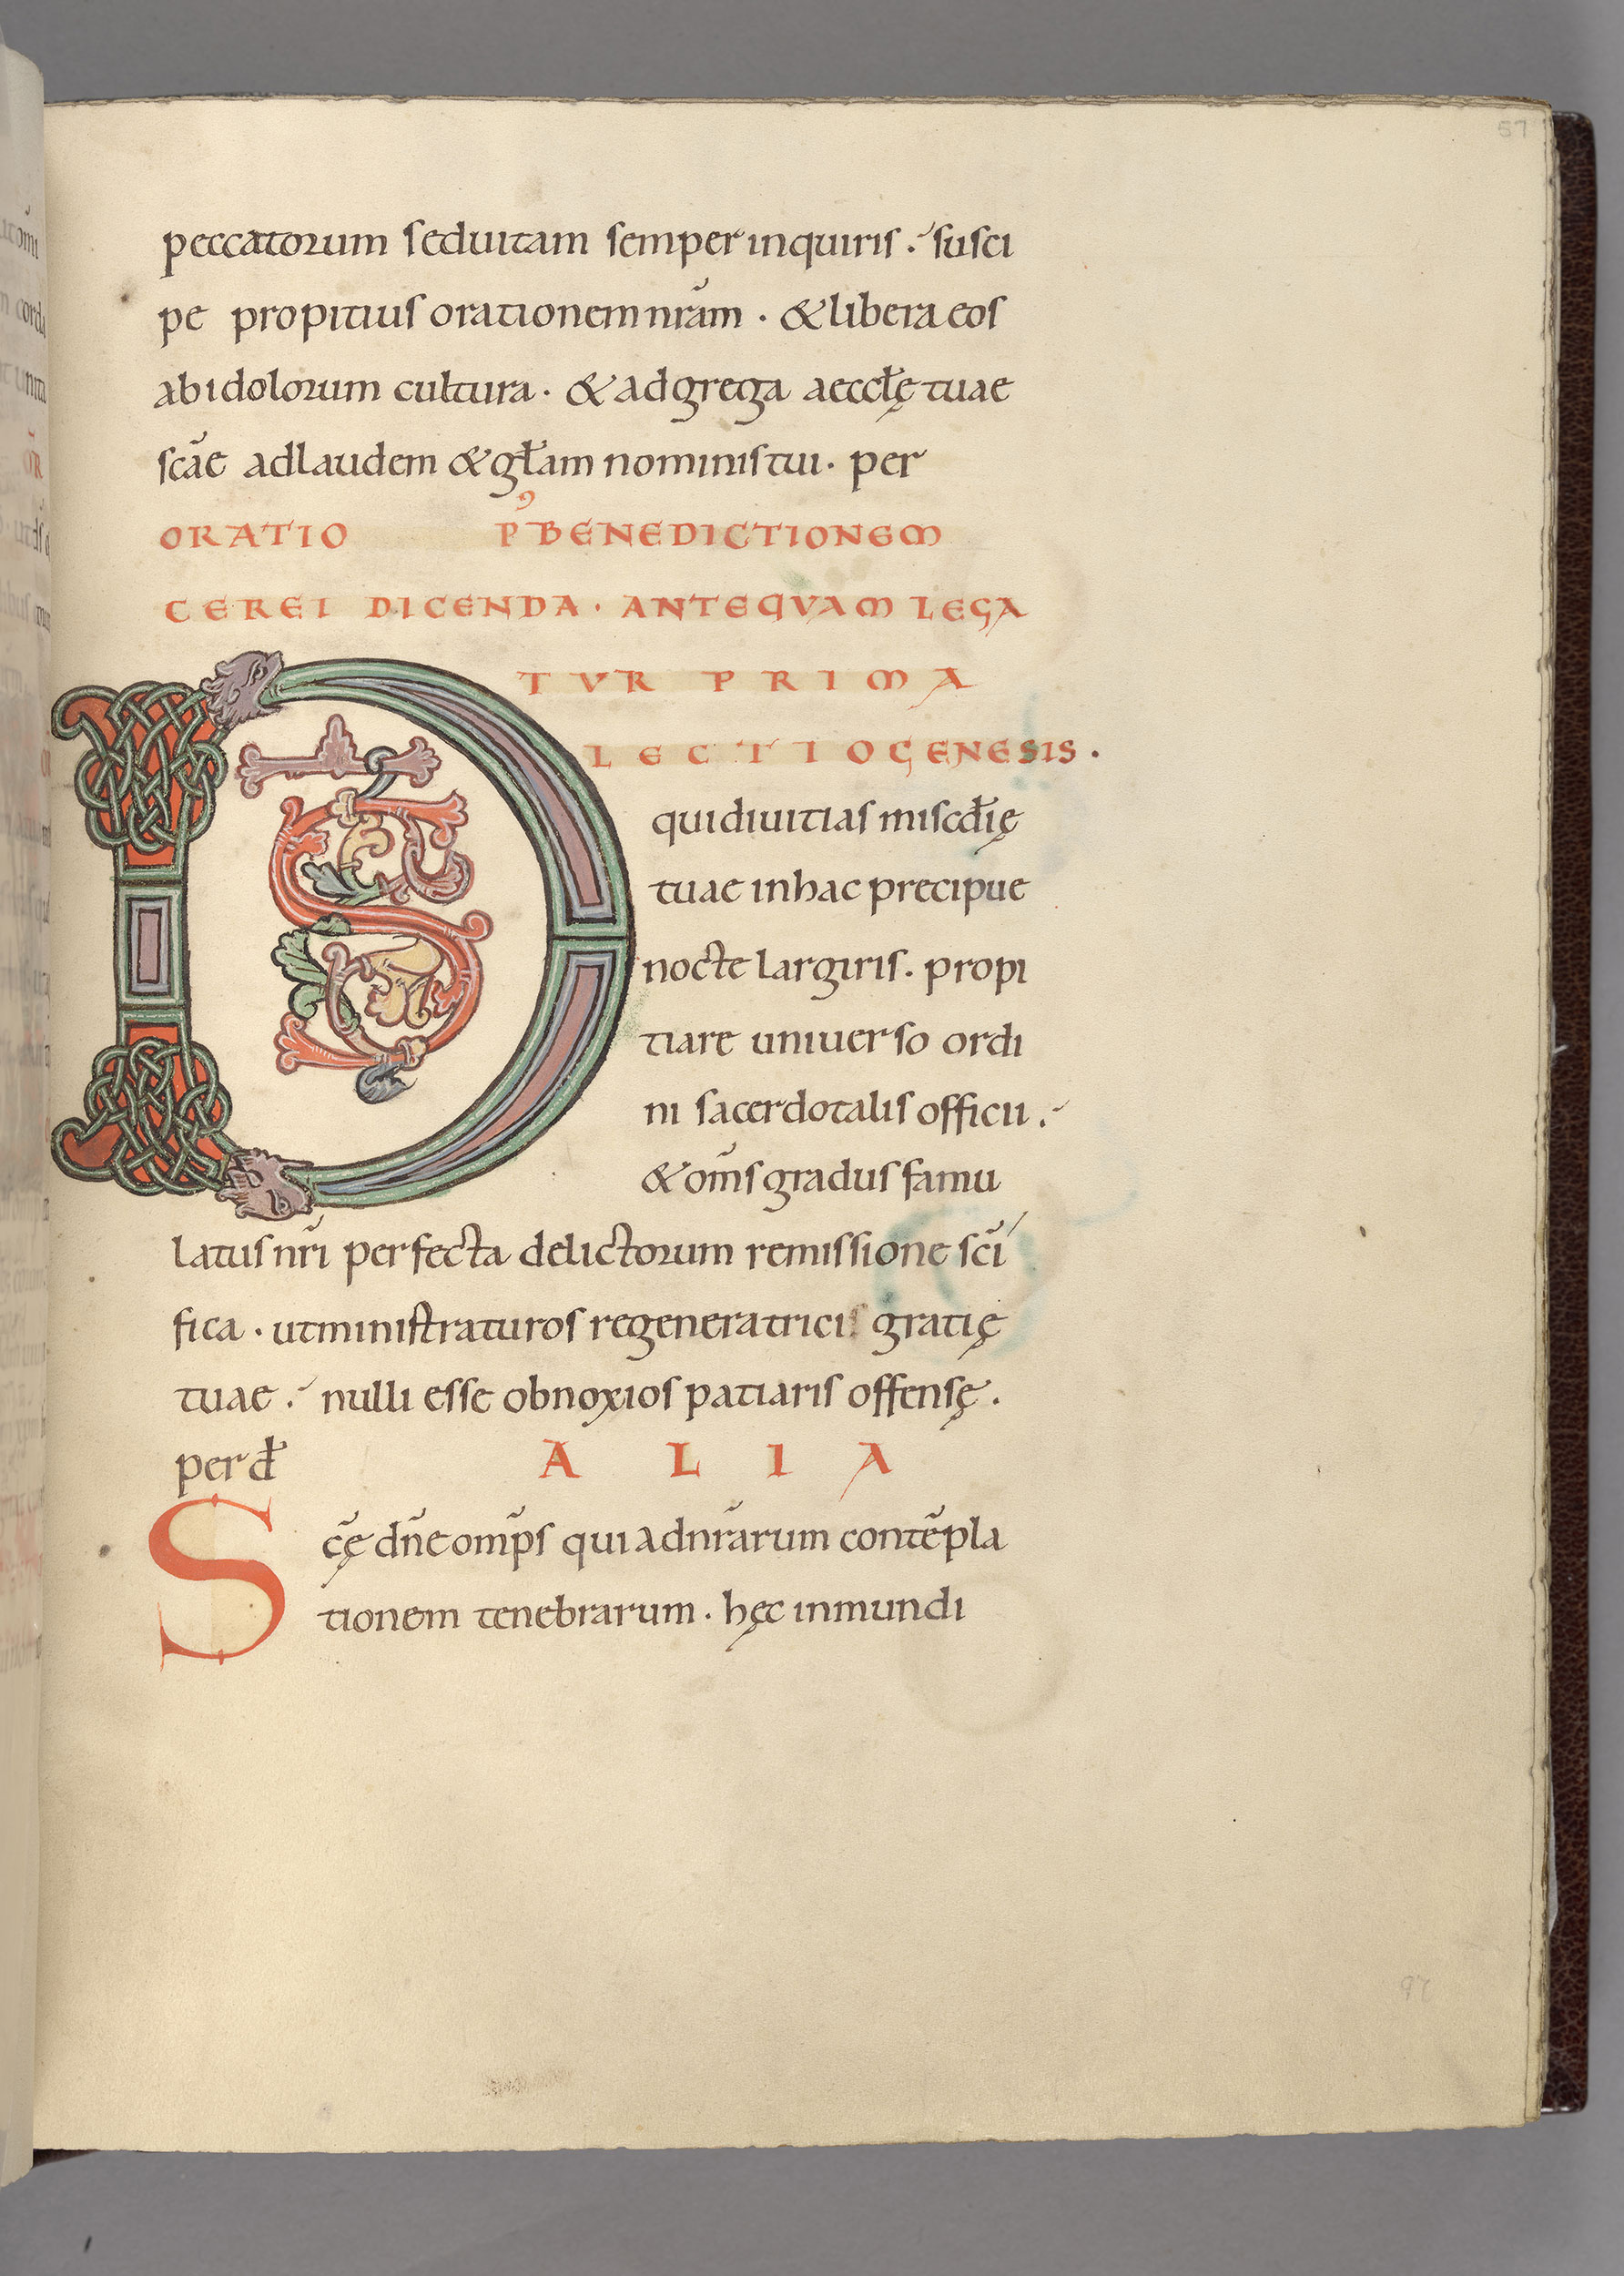 57
peccatorum sed uitam semper inquiris. suſci
pe propitius orationem nr̄am . & libera eos
ab idolorum cultura . & adgrega aeccłę tuae
sc̄ae ad laudem & gło̅am nominis tui . per
ORATIO P᾽ BENEDICTIONEM
CEREI DICENDA . ANTEQVAM LEGA
TVR PRIMA
LECTIO GENESIS .
DS
qui diuitias miscđię
tuae in hac precipue
nocte largiris . propi
tiare uniuerso ordi
ni sacerdotalis officii .
& om̄s gradus famu
latus nr̄i perfecta delictorum remissione sc̄i
fica . ut ministraturos regeneratricis gratię
tuae . nulli esse obnoxios patiaris offensę .
per đ ALIA
Sc̄ę dn̄e omp̄s qui ad nr̄arum contēpla
tionem tenebrarum . hęc in mundi
97